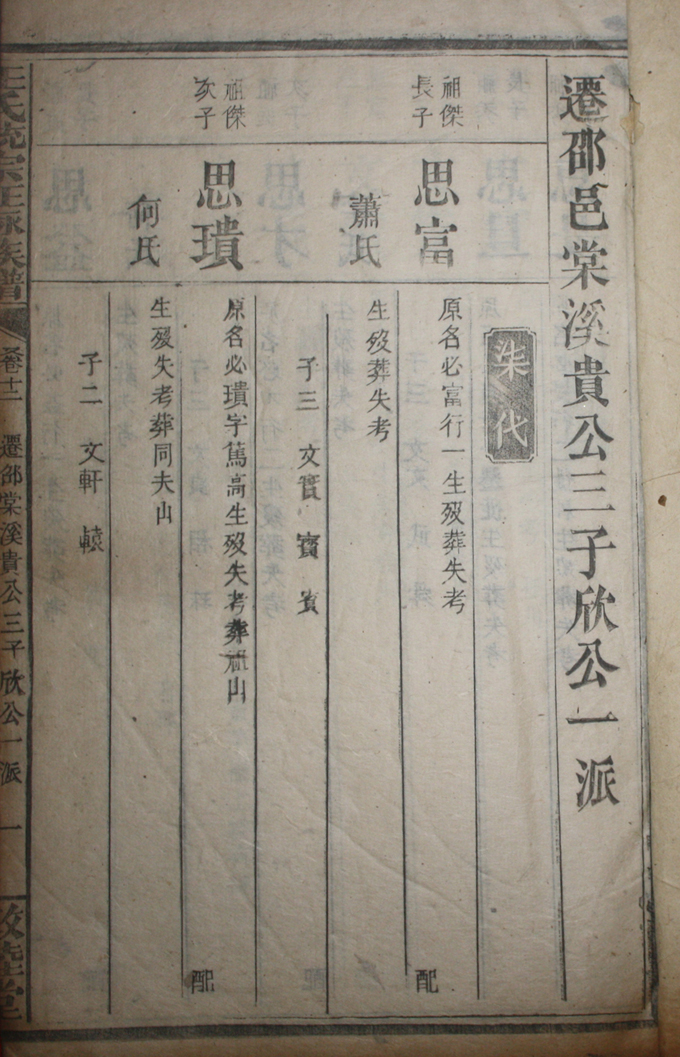 遷邵邑棠溪貴公三子欣公一派
柒代
祖傑
長子
思富
原名必富行一生歿葬失考
配
蕭氏
生歿葬失考
子三 文實 賓
祖傑
次子
思璝
原名必璝字篤高生歿失考葬祖山
配
何氏
生歿失考葬同夫山
子二 文軒 轅
氏統宗正脉族譜
卷十二
遷邵棠溪貴公三子欣公一派
一
敦睦堂